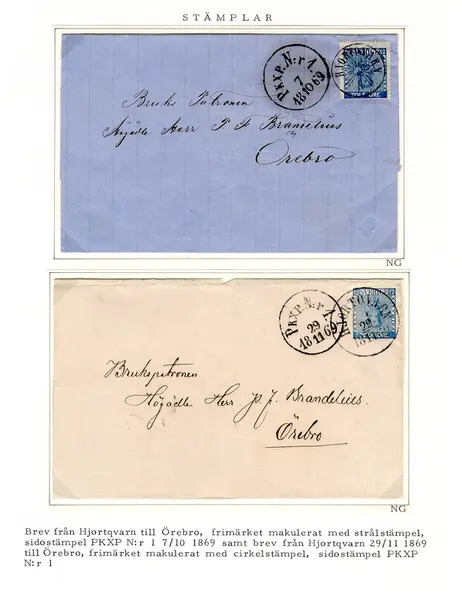 STÄMPLAR
PKXP. N:r 1.
7
18 10 69
TOLF ÖRE
Bruks Patronen
Höjädle Herr P J Brandelius
Örebro
NG
PKXP. N:r 1
29
18 11 69
HJORTQVARN
29
18 11
Brukspatronen
Höjädle Herr P. J. Brandelius.
Örebro
NG
Brev från Hjortqvarn till Örebro, frimärket makulerat med strålstämpel,
sidostämpel PKXP N:r 1 7/10 1869 samt brev från Hjortqvarn 29/11 1869
till Örebro, frimärket makulerat med cirkelstämpel, sidostämpel PKXP
N:r 1